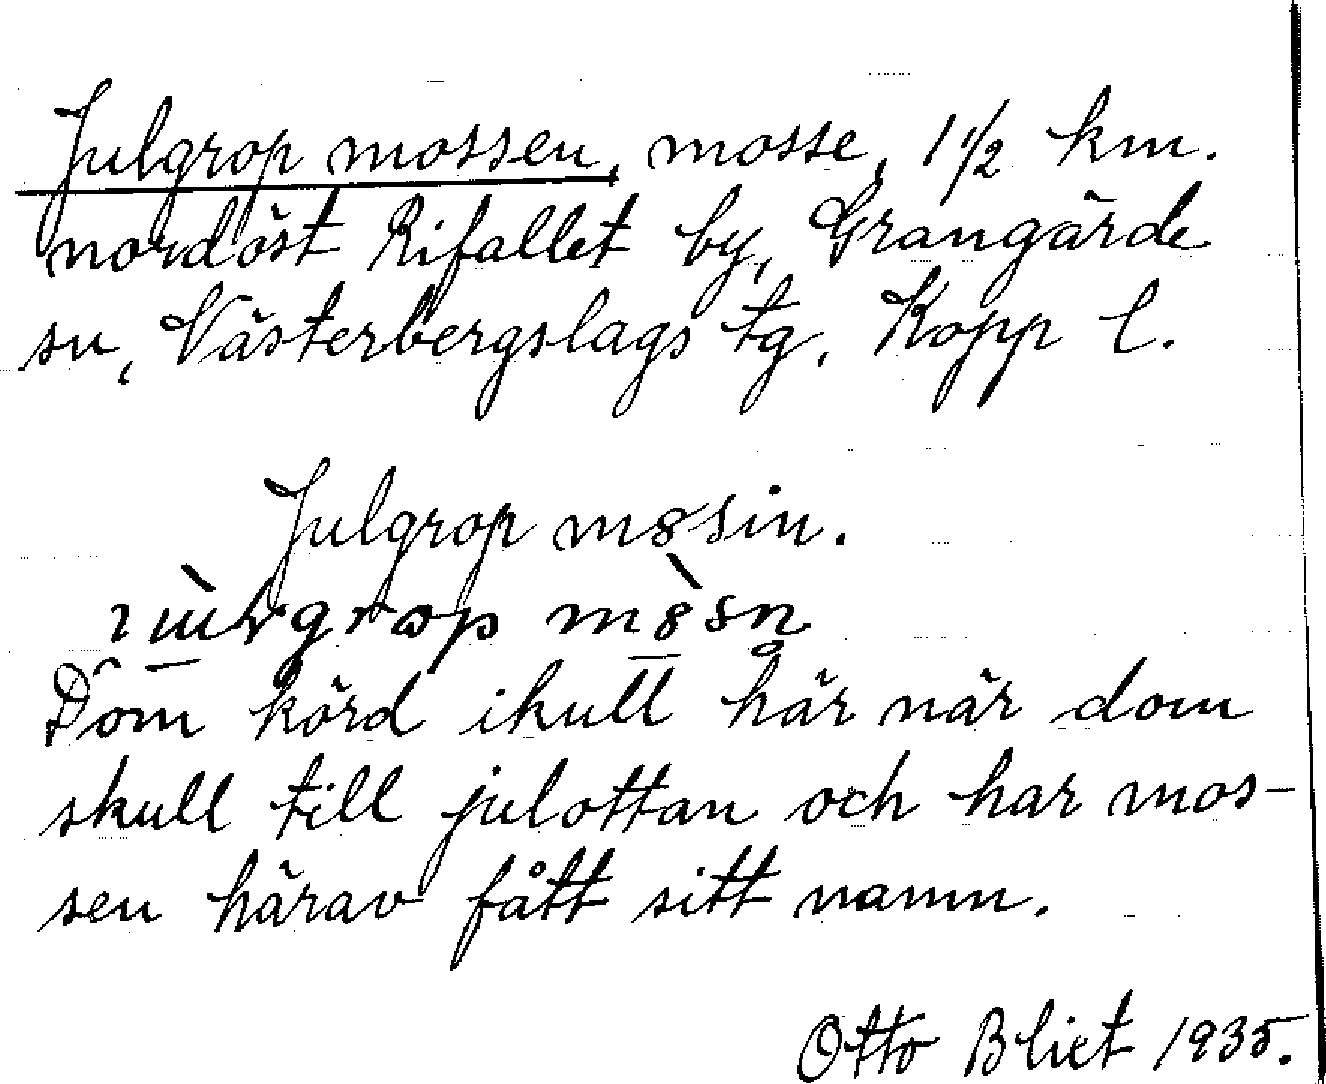 Julgrop mossen, mosse, 1 1/2 km.
nordöst Rifallet by, Grangärde
sn, Västerbergslags tg. Kopp l.
Julgrop m8sin.
m8̀sn̥
Dom körd ikull här när dom
skull till julottan och har mos-
sen härav fått sitt namn.
Otto Bliet 1935.